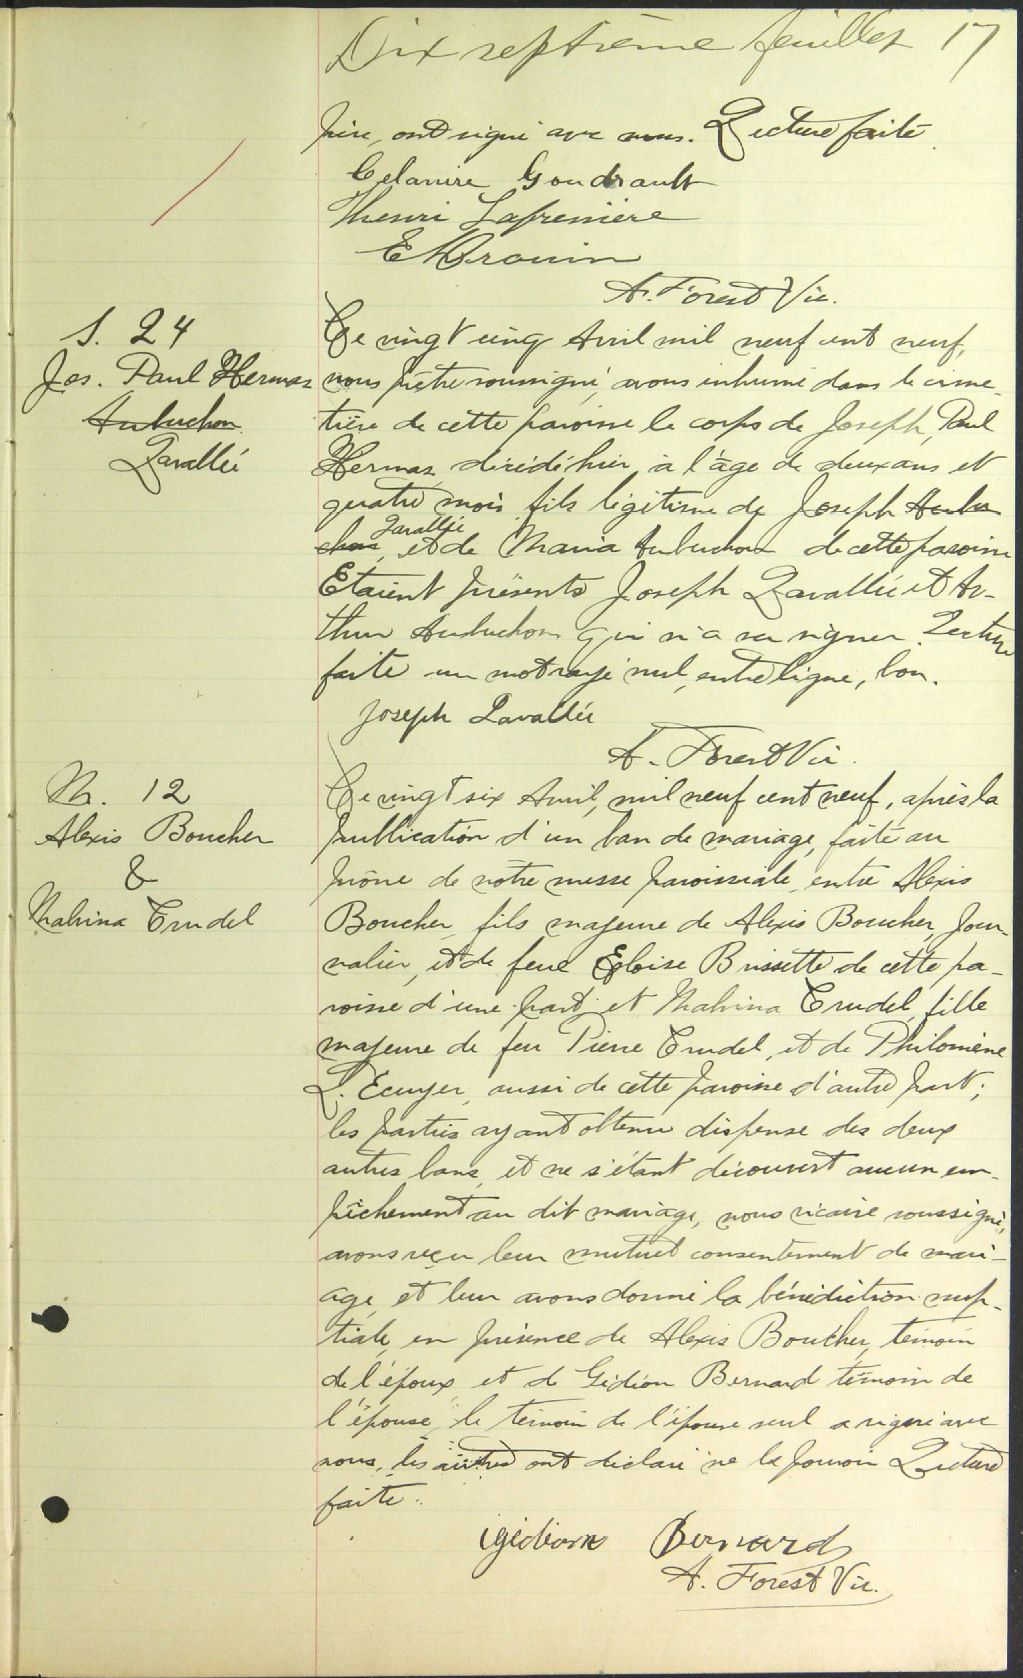 Dix septième feuillet 17
père, ont signé avec nous. Lecture faite.
Celanire Goudrault
Thenri Lafrenière
E Drouin
A. Forest Vic.
S. 24
Jos. Paul Hermas
Aubuchon
Lavallée
Ce vingt cinq Avril mil neuf cent neuf,
nous prêtre soussigné, avons inhumé dans le cime-
tière de cette paroisse le corps de Joseph, Paul
Hermas, décédé hier, à l'âge de deux ans et
quatre mois, fils légitime de Joseph Aubu
chon, Lavallée et de Maria Aubuchon de cette paroisse
Etaient présents Joseph Lavallée et Ar-
thur Aubuchon qui n'a su signer. Lecture
faite un mot rayé nul, entre ligne, bon.
Joseph Lavallée
A. Forest Vic.
M. 12
Alexis Boucher
&
Malvina Trudel
Ce vingt six Avril, mil neuf cent neuf, après la
publication d'un ban de mariage, faite au
prône de nôtre messe paroissiale, entre Alexis
Boucher, fils majeure de Alexis Boucher, Jour-
nalier, et de feue Eloise Brissette de cette pa-
roisse d'une part; et Malvina Trudel, fille
majeure de feu Pierre Trudel, et de Philomène
L'Ecuyer, aussi de cette paroisse d'autre part;
les parties ayant obtenu dispense des deux
autres bans, et ne s'étant découvert aucun em-
pêchement au dit mariage, nous vicaire soussigné,
avons reçu leur mutuel consentement de mari-
age, et leur avons donné la bénédiction nup-
tiale, en présence de Alexis Boucher, témoin
de l'époux, et de Gédéon Bernard témoin de
l'épouse, le témoin de l'épouse seul a signé avec
nous, les autres ont déclaré ne le pouvoir Lecture
faite.
Gédéon Bernard
A. Forest Vic.